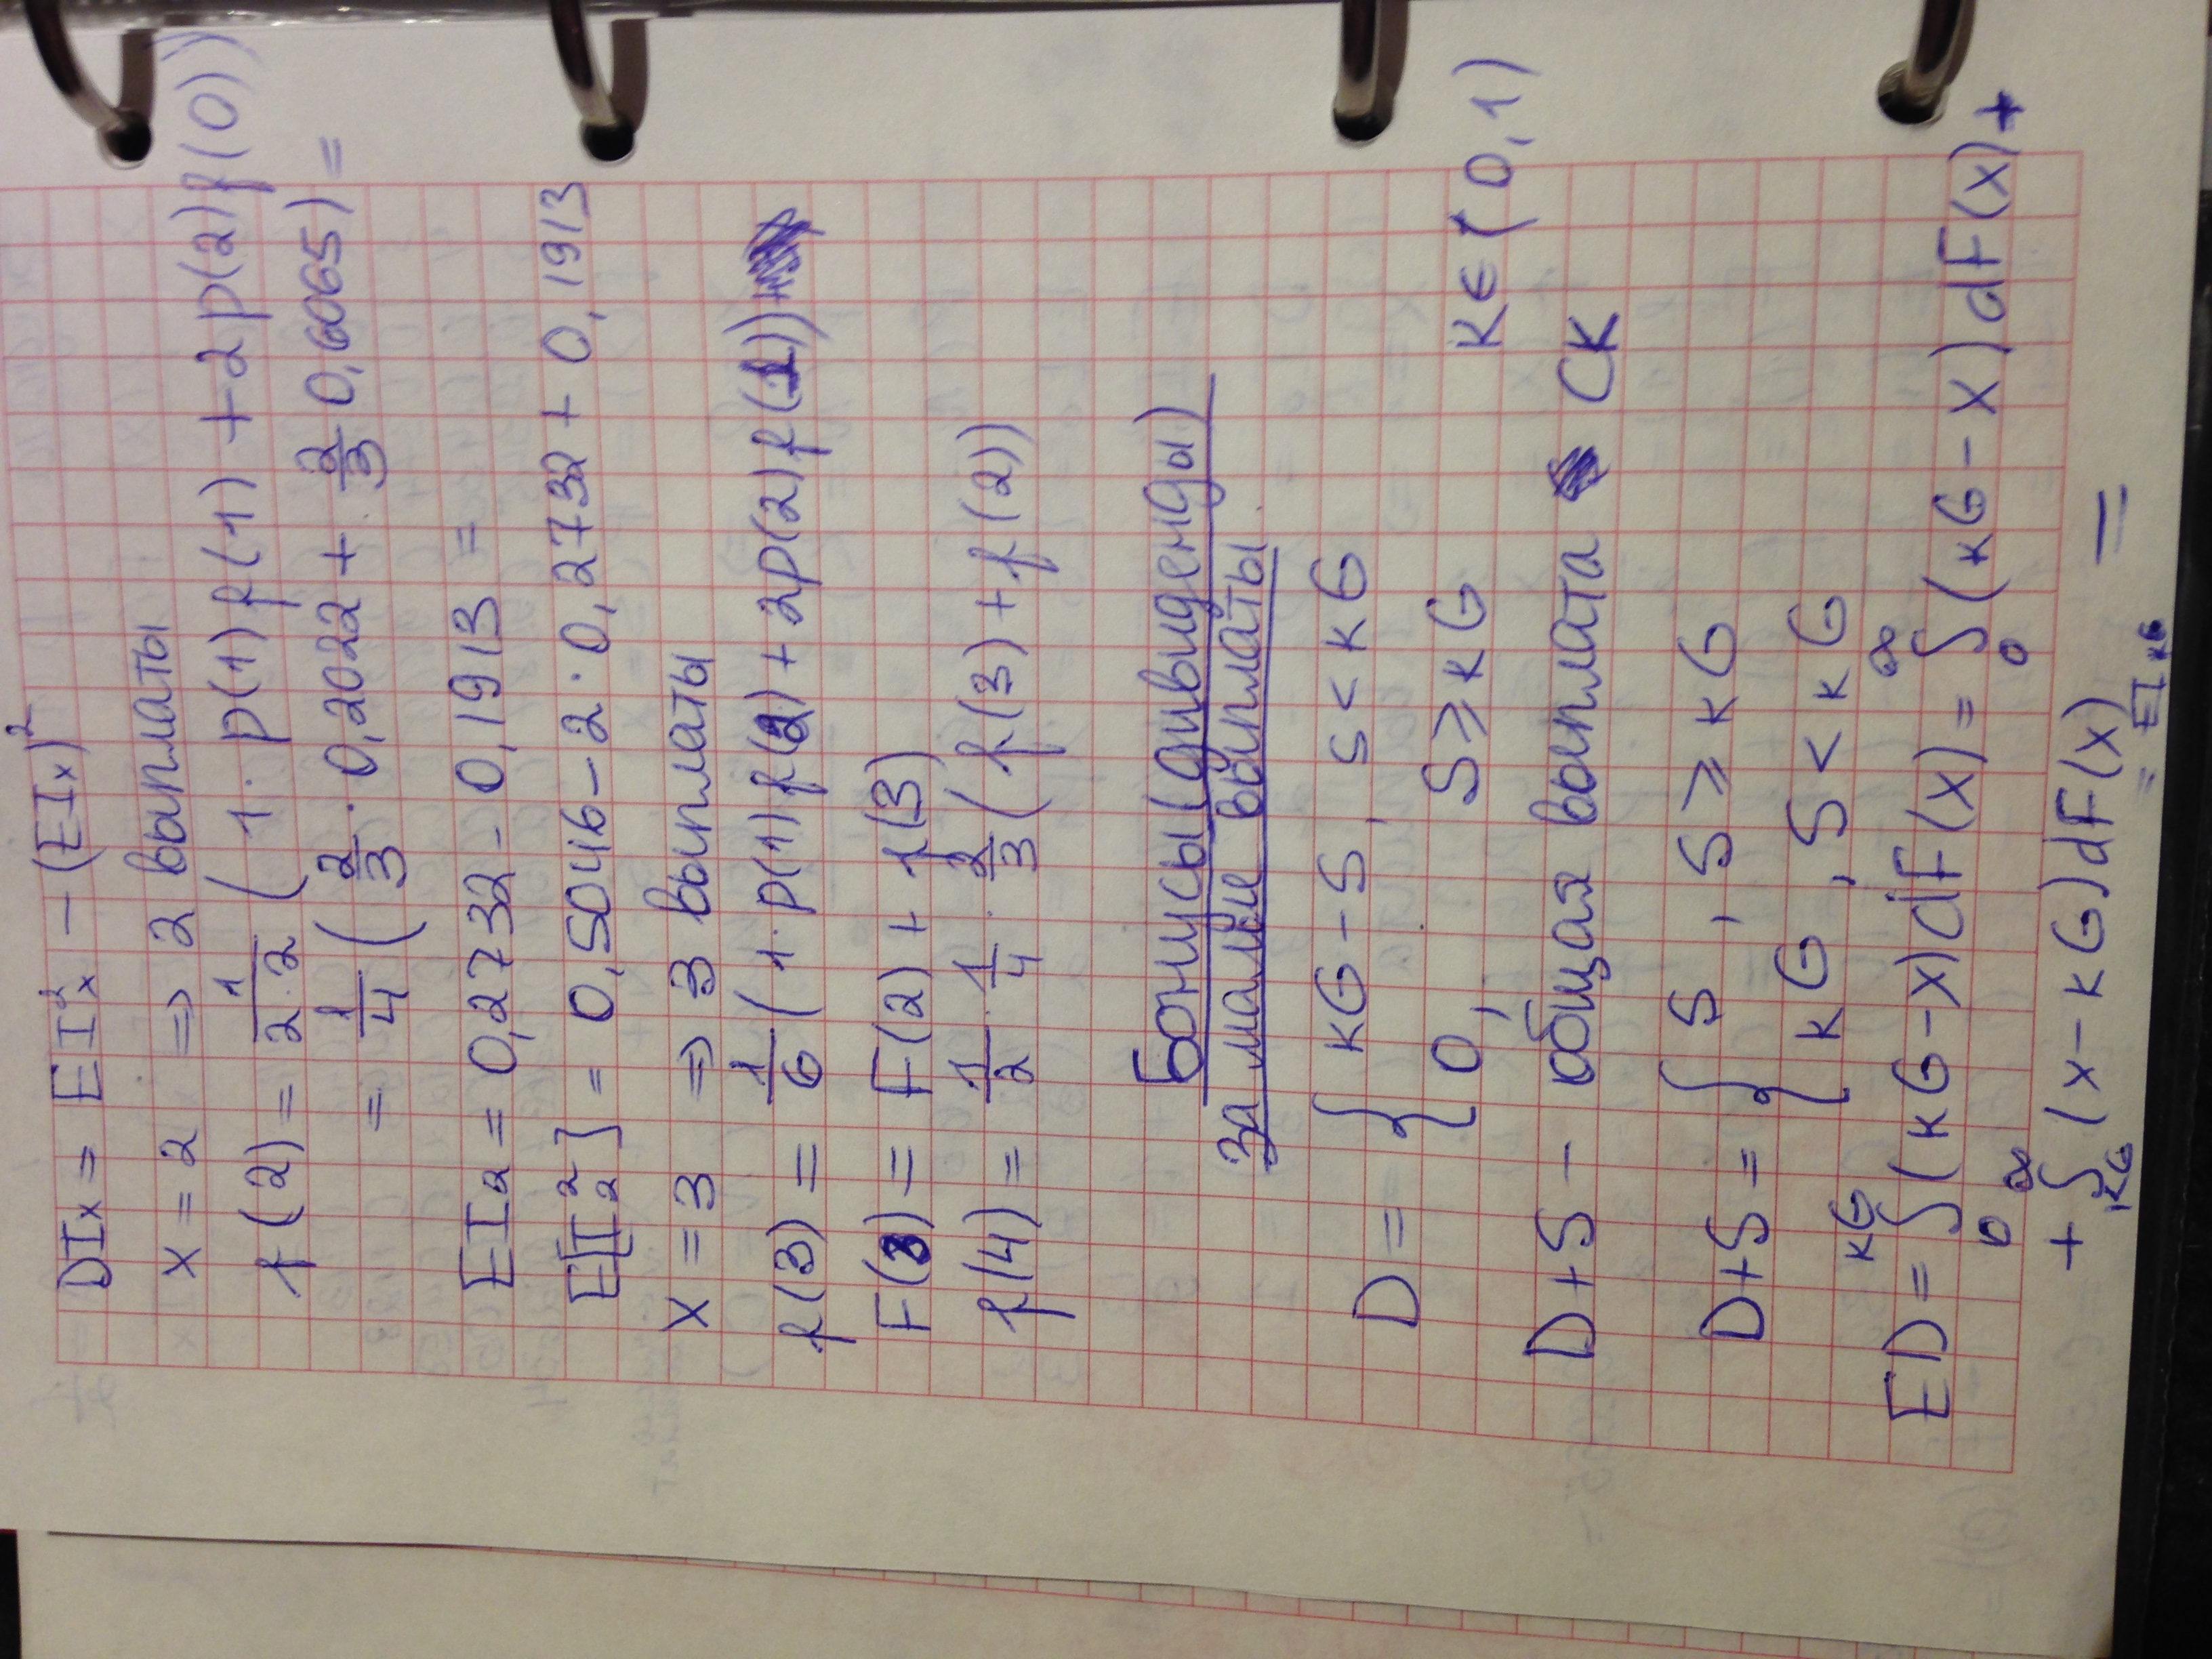 DIx = EI²x - (EIx)²
x = 2 => 2 выплаты
f(2) = 1/(2·2) (1·p(1)f(1) + 2p(2)f(0))
= 1/4 (2/3 · 0,2022 + 2/3 0,6065) =
EI₂ = 0,2732 - 0,1913 =
E[I²₂] = 0,5046 - 2·0,2732 + 0,1913
x = 3 => 3 выплаты
f(3) = 1/6 (1·p(1)f(2) + 2p(2)f(1))
F(3) = F(2) + f(3)
f(4) = 1/2 · 1/4 · 2/3 (f(3) + f(2))
Бонусы (дивиденды)
за малые выплаты
D = { kG - S, S < kG
0, S ≥ kG k ∈ (0,1)
D + S - общая выплата СК
D + S = { S, S ≥ kG
kG, S < kG
ED = ∫₀^kG (kG - x)dF(x) = ∫₀^∞ (kG - x)dF(x) +
+ ∫_kG^∞ (x - kG)dF(x) =
= EI_kG